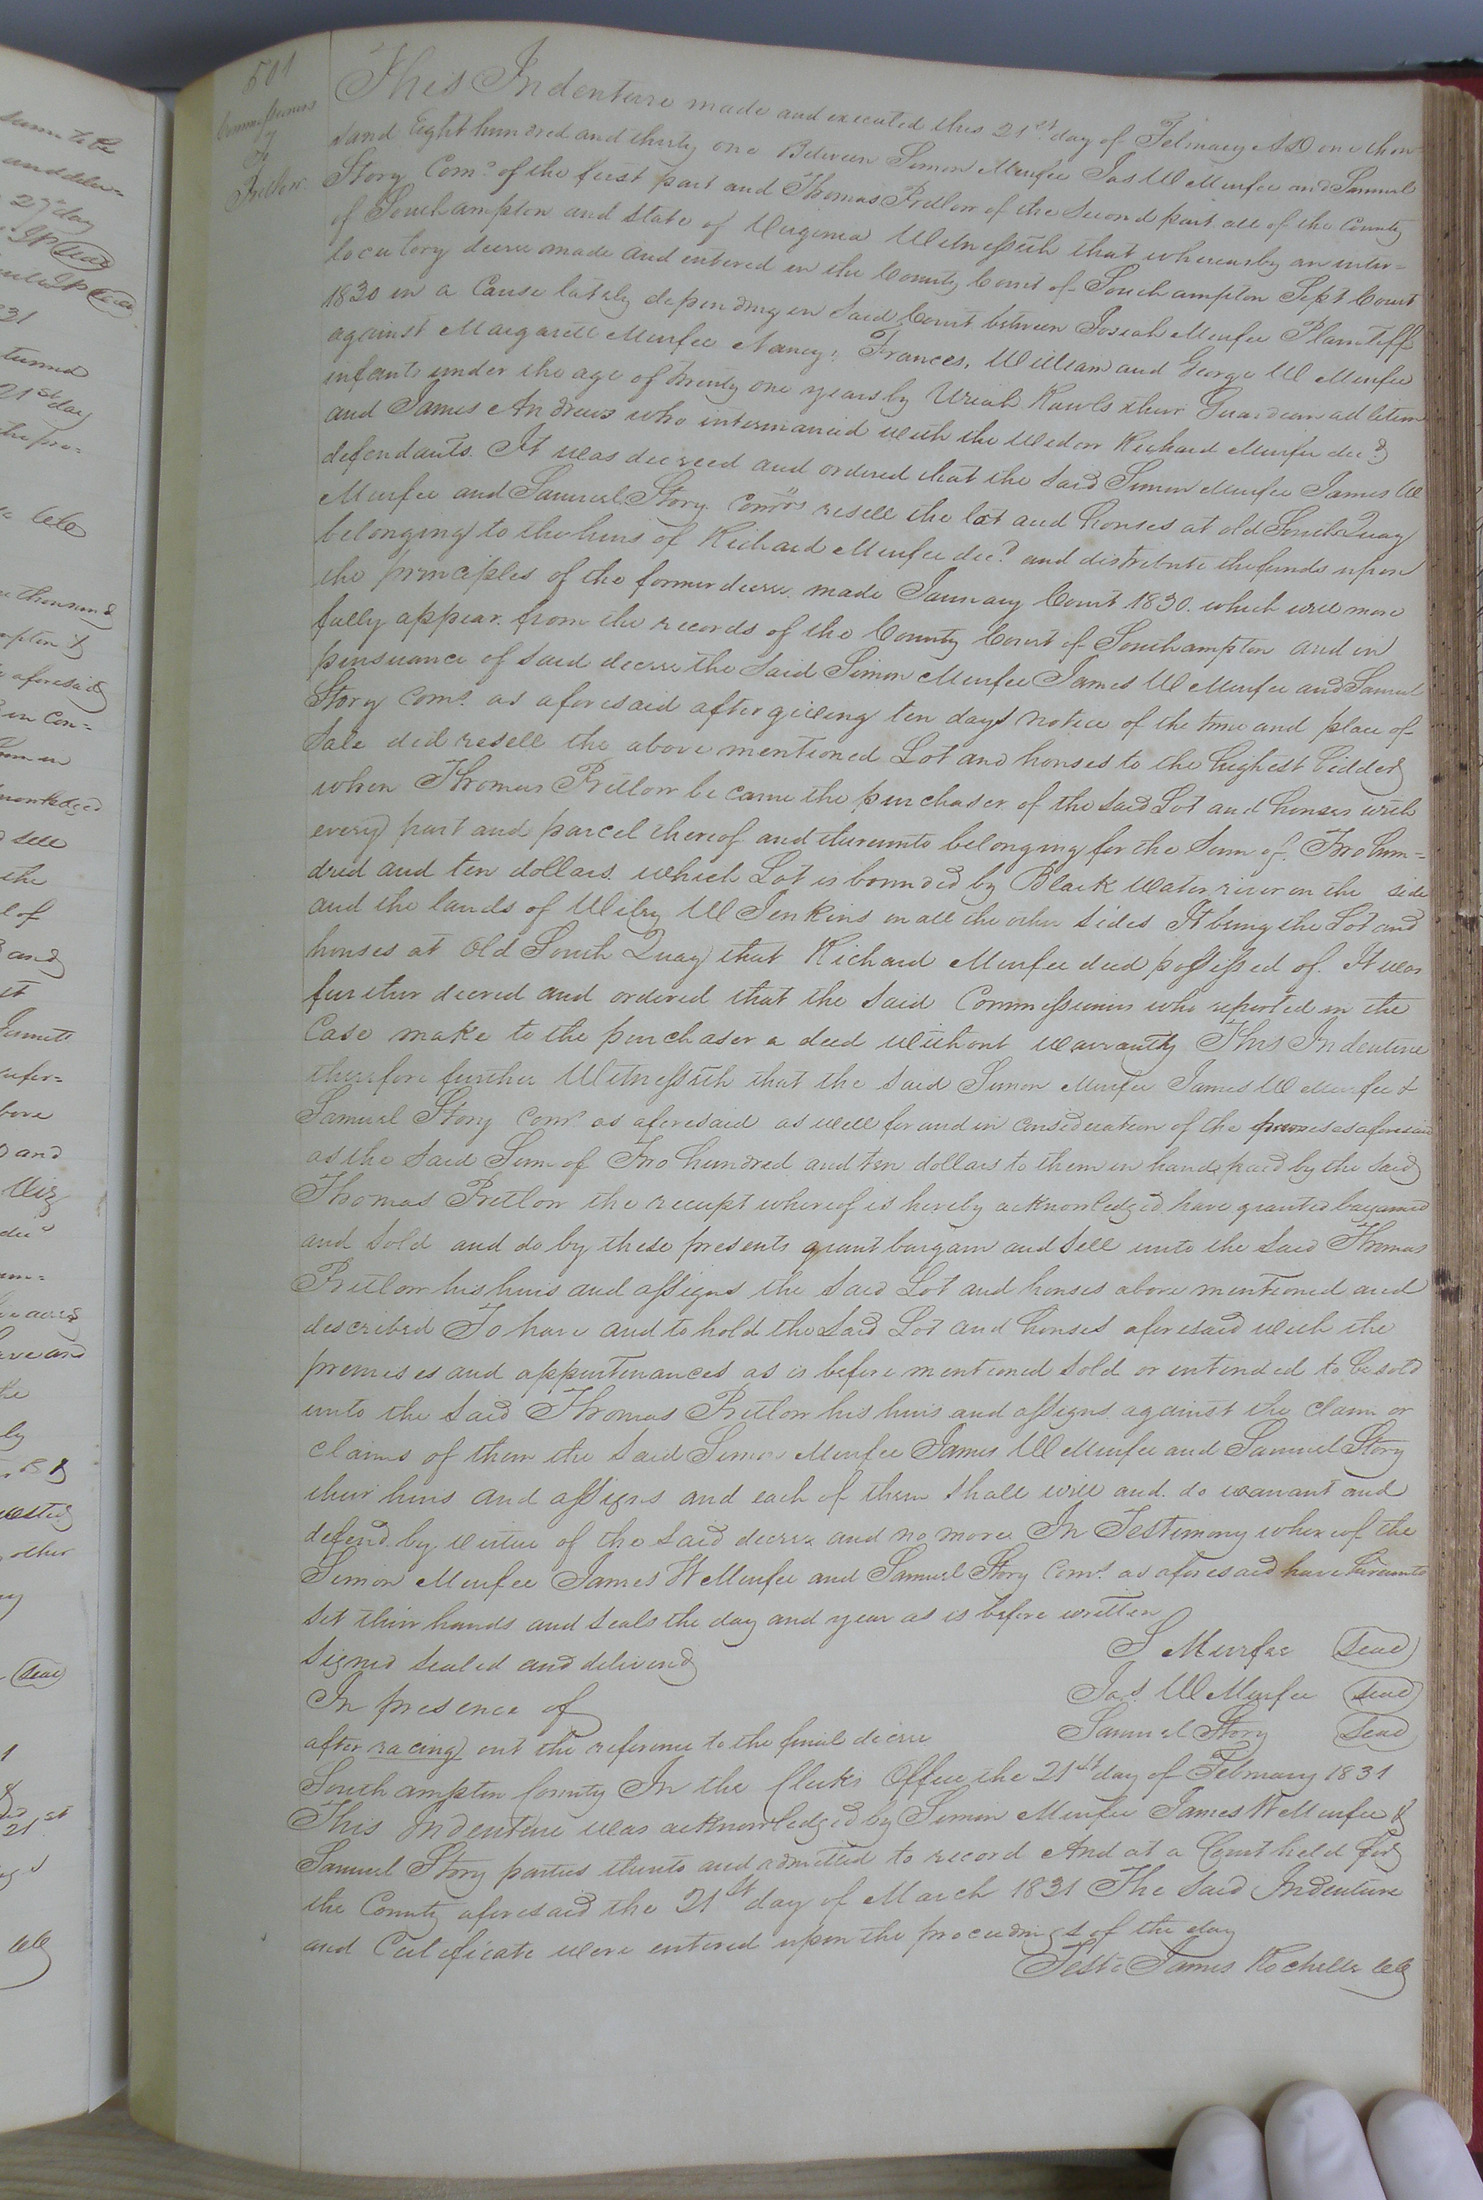 501
Commissioners
To
Pretlow
This Indenture made and executed this 21st day of February AD one thou
sand Eight hundred and thirty one Between Simon Murfee Jas W Murfee and Samuel
Story Coms of the first part and Thomas Pretlow of the second part all of the County
of Southampton and State of Virginia Witnesseth that whereas by an inter=
locutory decree made and entered in the County Court of Southampton Sept Court
1830 in a Cause lately depending in said Court between Josiah Murfee Plaintiff
against Margarett Murfee Nancy, Frances, William and George W Murfee
infants under the age of twenty one years by Uriah Rawls their Guardian ad litem
and James Andrews who intermarried with the Widow Richard Murfee decd
defendants. It was decreed and ordered that the said Simon Murfee James W
Murfee and Samuel Story Comrs resell the lot and houses at old South Quay
belonging to the heirs of Richard Murfee decd and distribute the funds upon
the principles of the former decree made January Court 1830. which will more
fully appear from the records of the County Court of Southampton and in
pursuance of said decree the said Simon Murfee James W Murfee and Samuel
Story Coms as aforesaid after giving ten days notice of the time and place of
Sale did resell the above mentioned Lot and houses to the highest bidder
when Thomas Pretlow became the purchaser of the said Lot and houses with
every part and parcel thereof and thereunto belonging for the Sum of Two hun=
dred and ten dollars which Lot is bounded by Black Water river on the side
and the lands of Wiley W Jenkins on all the other sides It being the Lot and
houses at Old South Quay that Richard Murfee died possessed of. It was
further decred and ordered that the said Commissioners who reported in the
Case make to the purchaser a deed without warranty This Indenture
therefore further Witnesseth that the said Simon Murfee James W Murfee &
Samuel Story Coms as aforesaid as well for and in consideration of the premises as aforesaid
as the said Sum of Two hundred and ten dollars to them in hand paid by the said
Thomas Pretlow the receipt whereof is hereby acknowledged have granted bargained
and sold and do by these presents grant bargain and sell unto the said Thomas
Pretlow his heirs and assigns the said Lot and houses above mentioned and
described To have and to hold the said Lot and houses aforesaid with the
premises and appurtenances as is before mentioned sold or intended to be sold
unto the said Thomas Pretlow his heirs and assigns against the claim or
claims of them the said Simon Murfee James W Murfee and Samuel Story
their heirs and assigns and each of them shall will and do warrant and
defend by virtue of the said decree and no more In Testimony whereof the
Simon Murfee James W Murfee and Samuel Story Coms as aforesaid have hereunto
set their hands and seals the day and year as is before written
Signed sealed and delivered
S Murfee Seal
In presence of
Jas. W Murfee Seal
after racing out the reference to the final decree
Samuel Story Seal
Southampton County In the Clerks Office the 21st day of February 1831
This Indenture was acknowledged by Simon Murfee James W Murfee &
Samuel Story parties thereto and admitted to record And at a Court held for
the County aforesaid the 21st day of March 1831 The said Indenture
and Certificate were entered upon the proceedings of the day
Teste James Rochelle CC